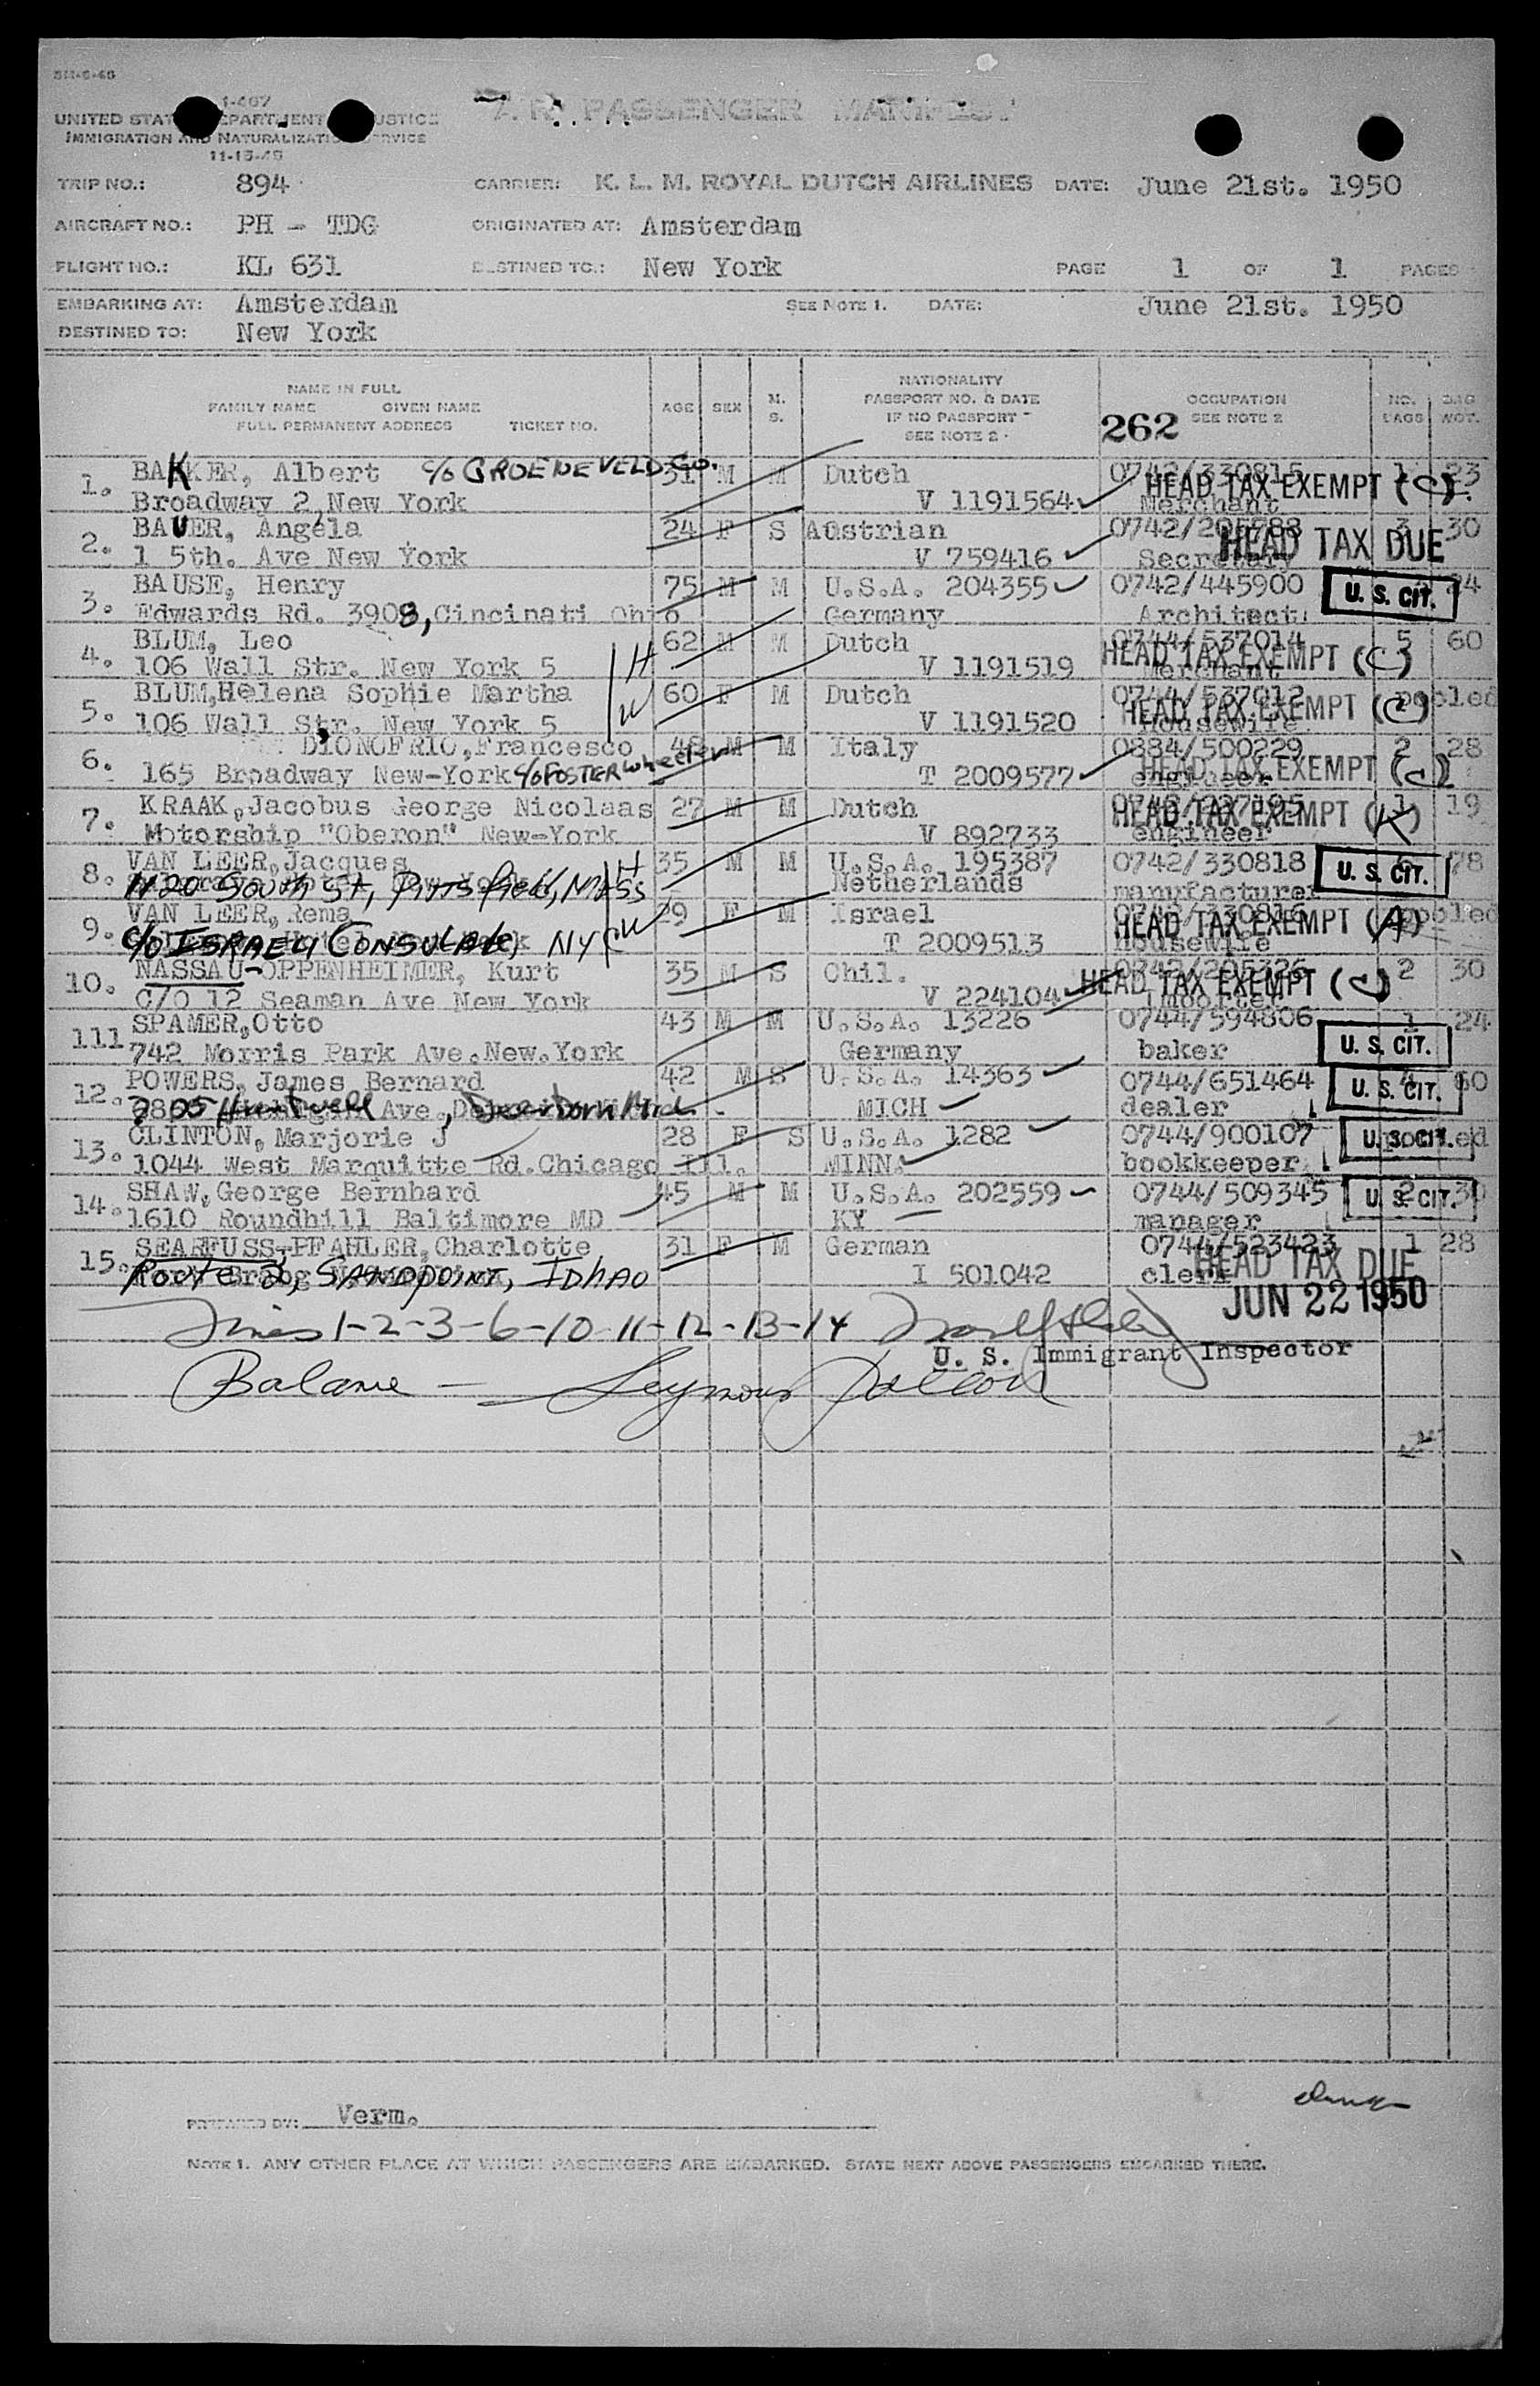 I-467
UNITED STATES DEPARTMENT OF JUSTICE
IMMIGRATION AND NATURALIZATION SERVICE
11-15-45
AIR PASSENGER MANIFEST
TRIP NO.: 894 CARRIER: K. L. M. ROYAL DUTCH AIRLINES DATE: June 21st. 1950
AIRCRAFT NO.: PH - TDG ORIGINATED AT: Amsterdam
FLIGHT NO.: KL 631 DESTINED TO.: New York PAGE 1 OF 1 PAGES
EMBARKING AT: Amsterdam SEE NOTE 1. DATE: June 21st. 1950
DESTINED TO: New York
NAME IN FULL
FAMILY NAME GIVEN NAME
FULL PERMANENT ADDRESS TICKET NO.
AGE SEX M. S.
NATIONALITY
PASSPORT NO. & DATE
IF NO PASSPORT
SEE NOTE 2
262 OCCUPATION
SEE NOTE 2
NO. BAGS BAG WGT.
1. BAKKER, Albert c/o GROENEVELD Co. 31 M M Dutch 0742/330815 1 23
Broadway 2, New York V 1191564 Merchant HEAD TAX EXEMPT (C)
2. BAUER, Angela 24 F S Austrian 3 30
1 5th. Ave New York V 759416 Secretary HEAD TAX DUE
3. BAUSE, Henry 75 M M U.S.A. 204355 0742/445900 U. S. CIT. 24
Edwards Rd. 3908, Cincinati Ohio Germany Architect
4. BLUM, Leo H 62 M M Dutch 0744/537014 5 60
106 Wall Str. New York 5 V 1191519 Merchant HEAD TAX EXEMPT (C)
5. BLUM, Helena Sophie Martha W 60 F M Dutch 0744/537012 pooled
106 Wall Str. New York 5 V 1191520 Housewife HEAD TAX EXEMPT (C)
6. DIONOFRIO, Francesco 48 M M Italy 0884/500229 2 28
165 Broadway New-York c/o FOSTER Wheeler T 2009577 engineer HEAD TAX EXEMPT (C)
7. KRAAK, Jacobus George Nicolaas 27 M M Dutch 1 19
Motorship "Oberon" New-York V 892733 engineer HEAD TAX EXEMPT
8. VAN LEER, Jacques H 35 M M U.S.A. 195387 0742/330818 U. S. CIT. 78
1120 South St, Pittsfield, MASS Netherlands manufacturer
9. VAN LEER, Rema W 29 F M Israel 0742/330816 pooled
c/o ISRAELI CONSULate, NY T 2009513 housewife HEAD TAX EXEMPT (A)
10. NASSAU-OPPENHEIMER, Kurt 35 M S Chil. 0742/205326 2 30
C/O 12 Seaman Ave New York V 224104 Importer HEAD TAX EXEMPT (C)
111 SPAMER, Otto 43 M M U.S.A. 13226 0744/594806 1 24
742 Morris Park Ave. New.York Germany baker U. S. CIT.
12. POWERS, James Bernard 42 M S U.S.A. 14363 0744/651464 U. S. CIT.
Ave, Dearborn Mich. MICH dealer
13. CLINTON, Marjorie J 28 F S U.S.A. 1282 0744/900107 U. S. CIT. pooled
1044 West Marquitte Rd. Chicago Ill. MINN. bookkeeper
14. SHAW, George Bernhard 45 M M U.S.A. 202559 0744/509345 U. S. CIT. 2 30
1610 Roundhill Baltimore MD KY manager
15. SEARFUSS-PFAHLER, Charlotte 31 F M German 0744/523423 1 28
Route 2, SANDPOINT, IDhAO I 501042 clerk HEAD TAX DUE
JUN 22 1950
Lines 1-2-3-6-10-11-12-13-14
U. S. Immigrant Inspector
Balance - Seymour
PREPARED BY: Verm.
NOTE 1. ANY OTHER PLACE AT WHICH PASSENGERS ARE EMBARKED. STATE NEXT ABOVE PASSENGERS EMBARKED THERE.